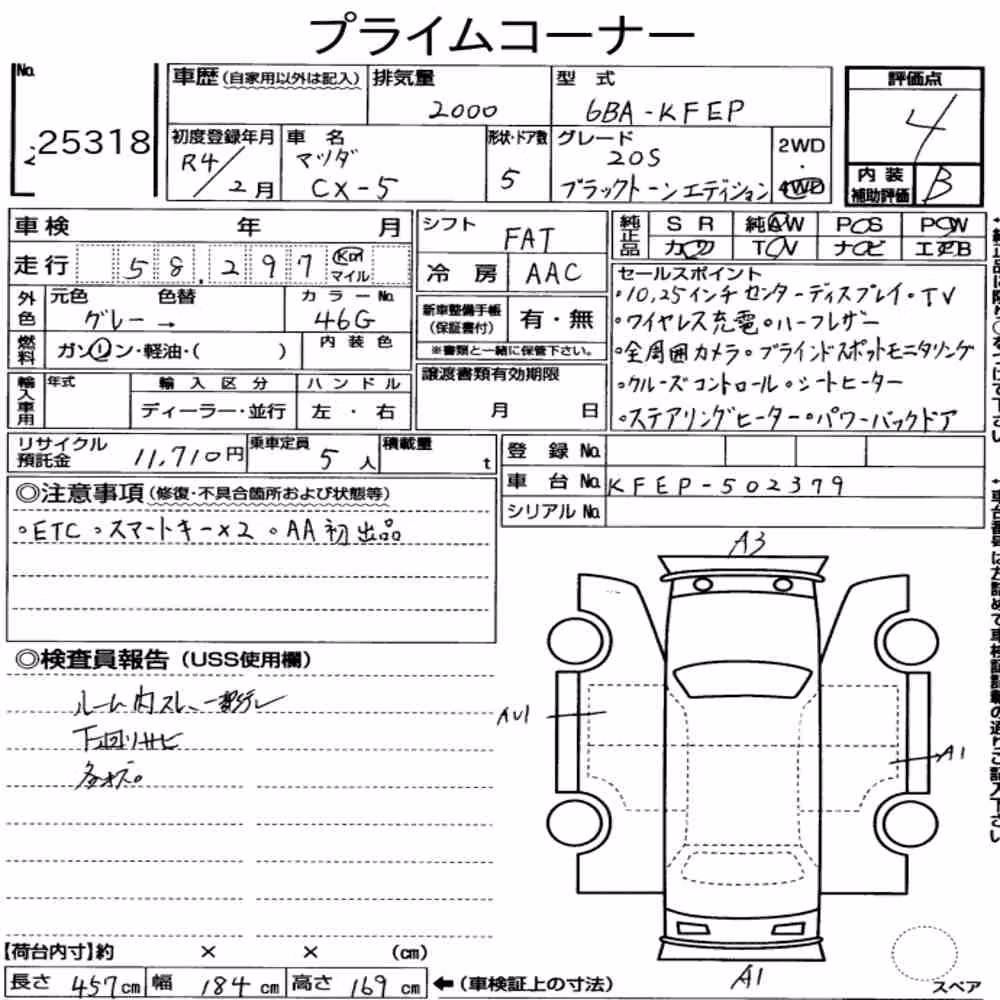 プライムコーナー
No. 25318
車歴(自家用以外は記入)
排気量 2000
型式 6BA-KFEP
評価点 4
初度登録年月 R4/2月
車名 マツダ CX-5
形状・ドア数 5
グレード 20S ブラックトーンエディション
2WD・4WD
内装補助評価 B
車検 年 月
走行 58,297 Km マイル
シフト FAT
冷房 AAC
純正品 SR 純AW PS PW
カワ TV ナビ エアB
外色 元色 色替 グレー →
カラーNo. 46G
燃料 ガソリン・軽油・( )
内装色
新車整備手帳(保証書付) 有・無
※書類と一緒に保管下さい。
譲渡書類有効期限 月 日
輸入車用 年式
輸入区分 ディーラー・並行
ハンドル 左・右
セールスポイント
・10,25インチセンターディスプレイ・TV
・ワイヤレス充電・ハーフレザー
・全周囲カメラ・ブラインドスポットモニタリング
・クルーズコントロール・シートヒーター
・ステアリングヒーター・パワーバックドア
リサイクル預託金 11,710円
乗車定員 5人
積載量 t
登録No.
車台No. KFEP-502379
シリアルNo.
◎注意事項(修復・不具合箇所および状態等)
・ETC・スマートキー×2・AA初出品
◎検査員報告(USS使用欄)
ルーム内スレ、一部汚レ
下回リサビ
各キズ。
A3
AU1
A1
A1
スペア
【荷台内寸】約 × × (cm)
長さ 457cm 幅 184cm 高さ 169cm ←(車検証上の寸法)